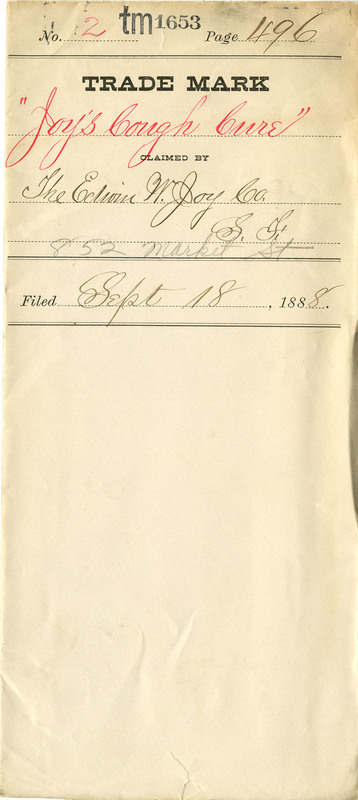 No. 2 tm 1653 Page 496
TRADE MARK
"Joy's Cough Cure"
CLAIMED BY
The Edwin W. Joy Co.
S. F.
852 Market St
Filed Sept 18, 1888.